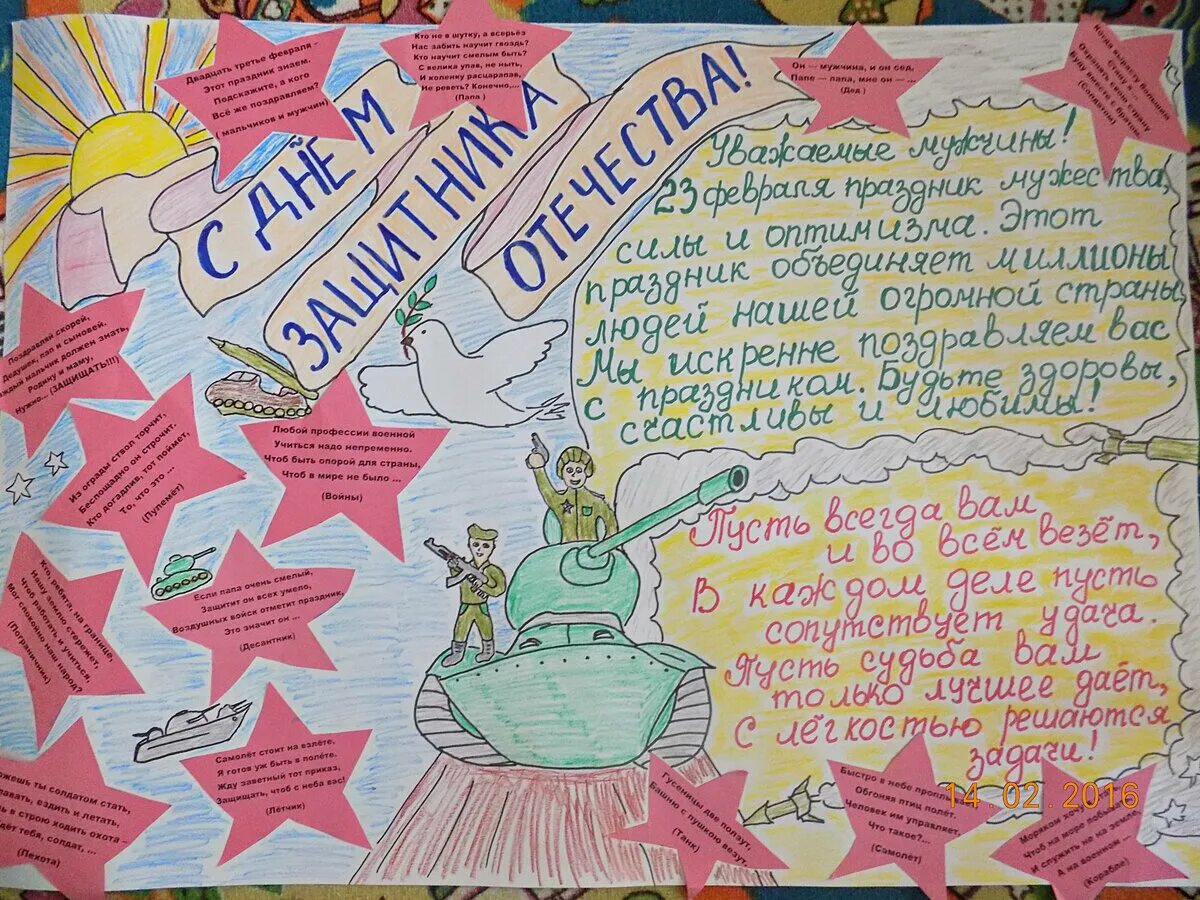 Двадцать третье февраля -
Этот праздник знаем.
Подскажите, а кого
Всё же поздравляем?
( мальчиков и мужчин)
Кто не в шутку, а всерьёз
Нас забить научит гвоздь?
Кто научит смелым быть?
С велика упав, не ныть,
И коленку расцарапав,
Не реветь? Конечно,...
(Папа )
Он — мужчина, и он сед,
Папе — папа, мне он — ...
(Дед )
Когда вырасту большим
Стану я ...
Охранять свою страну
Буду вместе с братом
(Солдатом)
С ДНЁМ
ЗАЩИТНИКА
ОТЕЧЕСТВА!
Уважаемые мужчины!
23 февраля праздник мужества,
силы и оптимизма. Этот
праздник объединяет миллионы
людей нашей огромной страны.
Мы искренне поздравляем вас
с праздником. Будьте здоровы,
счастливы и любимы!
Поздравляй скорей,
Дедушек, пап и сыновей.
каждый мальчик должен знать,
Родину и маму,
Нужно... (ЗАЩИЩАТЬ!!!)
Из ограды ствол торчит,
Беспощадно он строчит.
Кто догадлив, тот поймет,
То, что это ...
(Пулемёт)
Любой профессии военной
Учиться надо непременно.
Чтоб быть опорой для страны,
Чтоб в мире не было ...
(Войны)
Кто, ребята, на границе,
Нашу землю стережет,
Чтоб работать и учиться,
Мог спокойно наш народ?
(Пограничник)
Если папа очень смелый,
Защитит он всех умело,
Воздушных войск отметит праздник,
Это значит он ...
(Десантник)
Самолёт стоит на взлёте,
Я готов уж быть в полёте.
Жду заветный тот приказ,
Защищать, чтоб с неба вас!
(Лётчик)
ожешь ты солдатом стать,
лавать, ездить и летать,
ь в строю ходить охота -
дёт тебя, солдат, ...
(Пехота)
Пусть всегда вам
и во всём везёт,
В каждом деле пусть
сопутствует удача.
Пусть судьба вам
только лучшее даёт,
С лёгкостью решаются
задачи!
Гусеницы две ползут,
Башню с пушкою везут,
(Танк)
Быстро в небе проплы
Обгоняя птиц полёт.
Человек им управляет,
Что такое?...
(Самолёт)
Моряком хоч
Чтоб на море побыв
И служить на земле,
А на военном ...
(Корабле)
14.02.2016